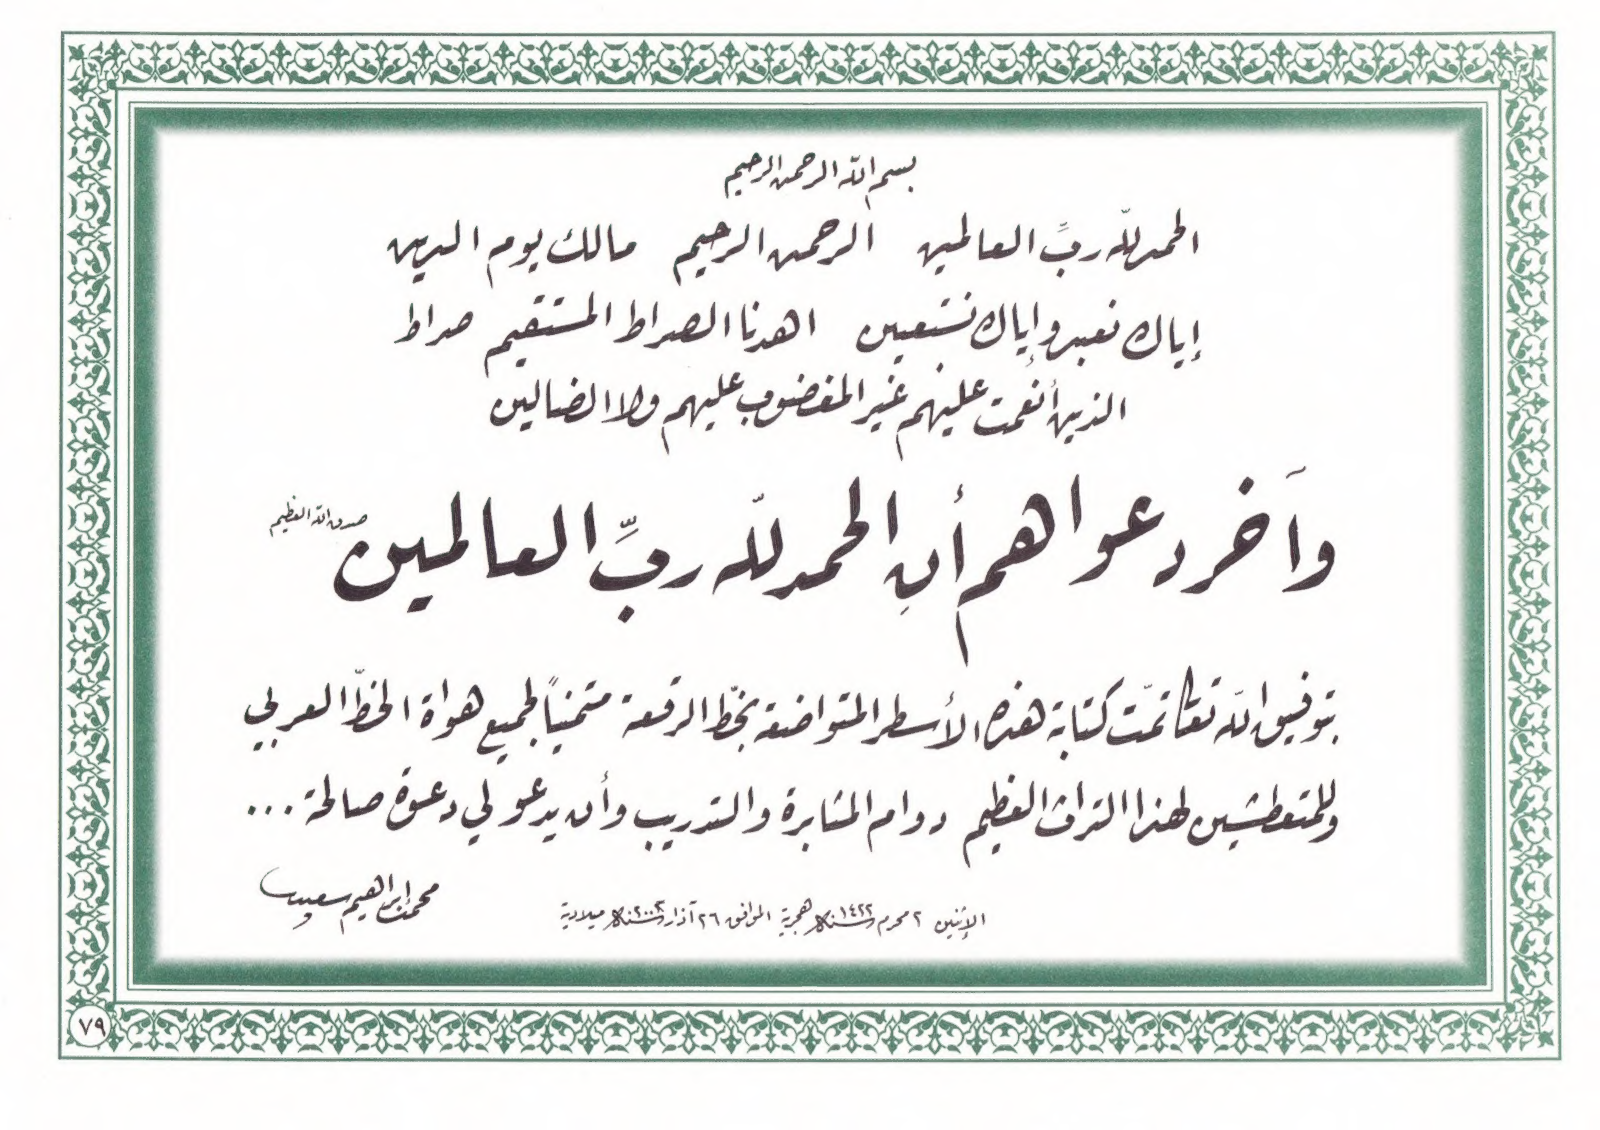 بسم الله الرحمن الرحيم
الحمد لله ربِّ العالمين الرحمن الرحيم مالك يوم الدين
إياك نعبد وإياك نستعين اهدنا الصراط المستقيم صراط
الذين أنعمت عليهم غير المغضوب عليهم ولا الضالين
وآخر دعواهم أنِ الحمد للّه ربِّ العالمين
صدق الله العظيم
بتوفيق اللّه تعالى تمّت كتابة هذه الأسطر المتواضعة بخطّ الرقعة متمنياً لجميع هواة الخطّ العربي
وللمتعطشين لهذا التراث العظيم دوام المثابرة والتدريب وأن يدعو لي دعوة صالحة ...
الإثنين ٢ محرم سنة ١٤٢٢ هجرية الموافق ٢٦ آذار سنة ٢٠٠١ ميلادية
محمد إبراهيم سعيد
٧٩